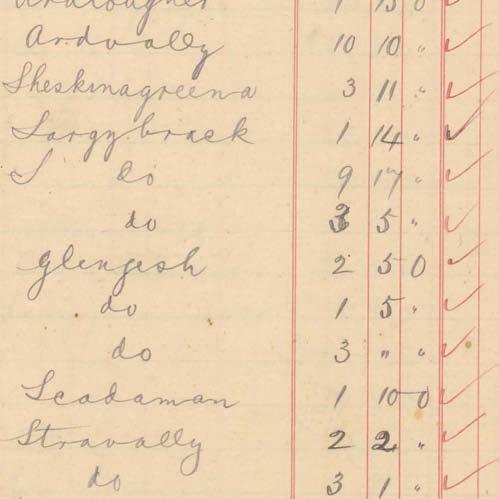 Ardvally 10 10 "
Sheskinagreena 3 11 "
Largybrack 1 14 "
L do 9 17 "
do 3 5 "
Glengesh 2 5 0
do 1 5 "
do 3 " "
Scadaman 1 10 0
Stravally 2 2 "
do 3 1 "